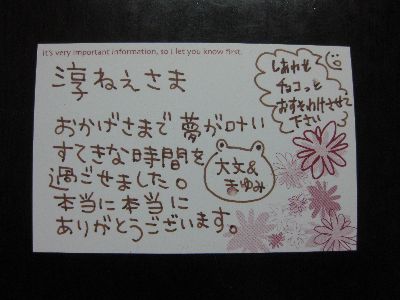 It's very important information, so I let you know first.
淳ねえさま
しあわせ
チョコっと
おすそわけさせて
下さい
おかげさまで 夢が叶い
すてきな時間を
過ごせました。
本当に本当に
ありがとうございます。
大文&
まゆみ